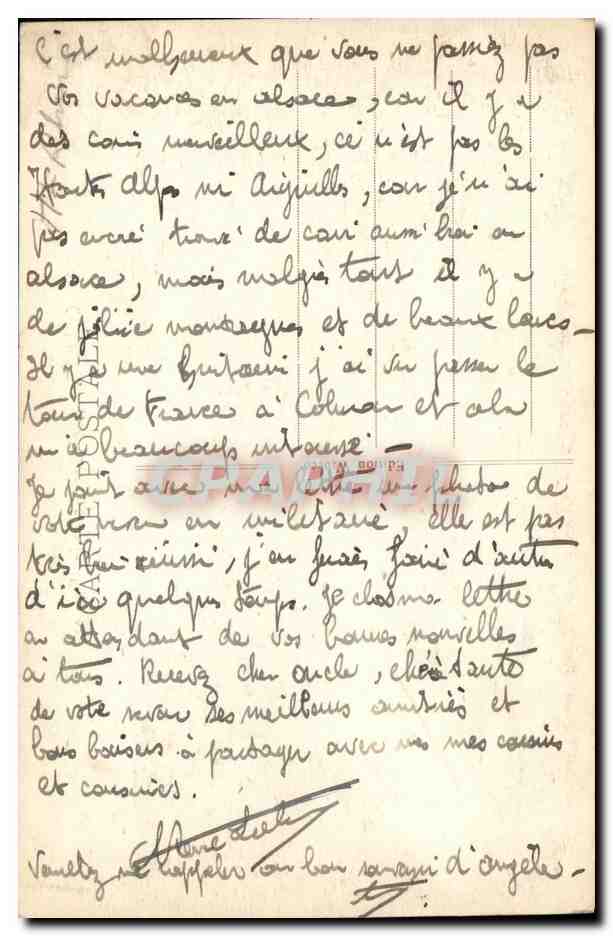 C'est malheureux que vous ne passiez pas
vos vacances en alsace, car il y a
des coins merveilleux, ce n'est pas les
Hautes Alpes ni Aiguilles, car je n'ai
pas encore trouvé de coin aussi en
alsace, mais malgrès tout il y a
de jolie montagnes et de beaux lacs -
Il y a une j'ai vu passer le
tour de France à Colmar et cela
m'a beaucoup intéressé -
Je joint avec ma lettre une photo de
votre neveu en militaire, elle est pas
très bien réussi, j'en ferais faire d'autres
d'ici quelques temps. Je clos ma lettre
en attendant de vos bonnes nouvelles
à tous. Recevez cher oncle, chère tante
de votre neveu ses meilleurs amitiés et
bons baisers à partager avec mes cousins
et cousines.
Pierre
Veuillez me rappeler au bon souvenir d'Angèle -
CARTE POSTALE
CPAPHIL